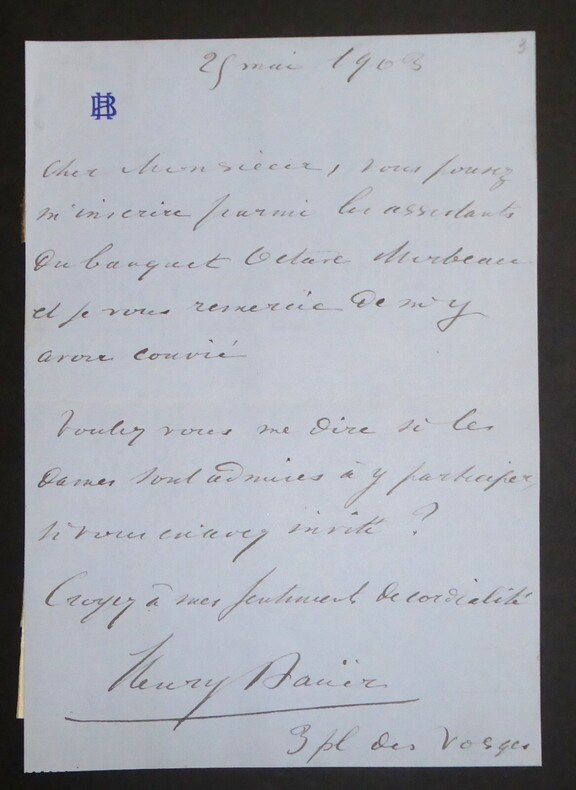 3
25 mai 1903
HB
Cher Monsieur, vous pouvez
m'inscrire parmi les assistants
du banquet Octave Mirbeau
et je vous remercie de m'y
avoir convié
Voulez vous me dire si les
dames sont admises à y participer,
si vous en avez invité ?
Croyez à mes sentiments de cordialité
Henry Bauër
3 pl des Vosges